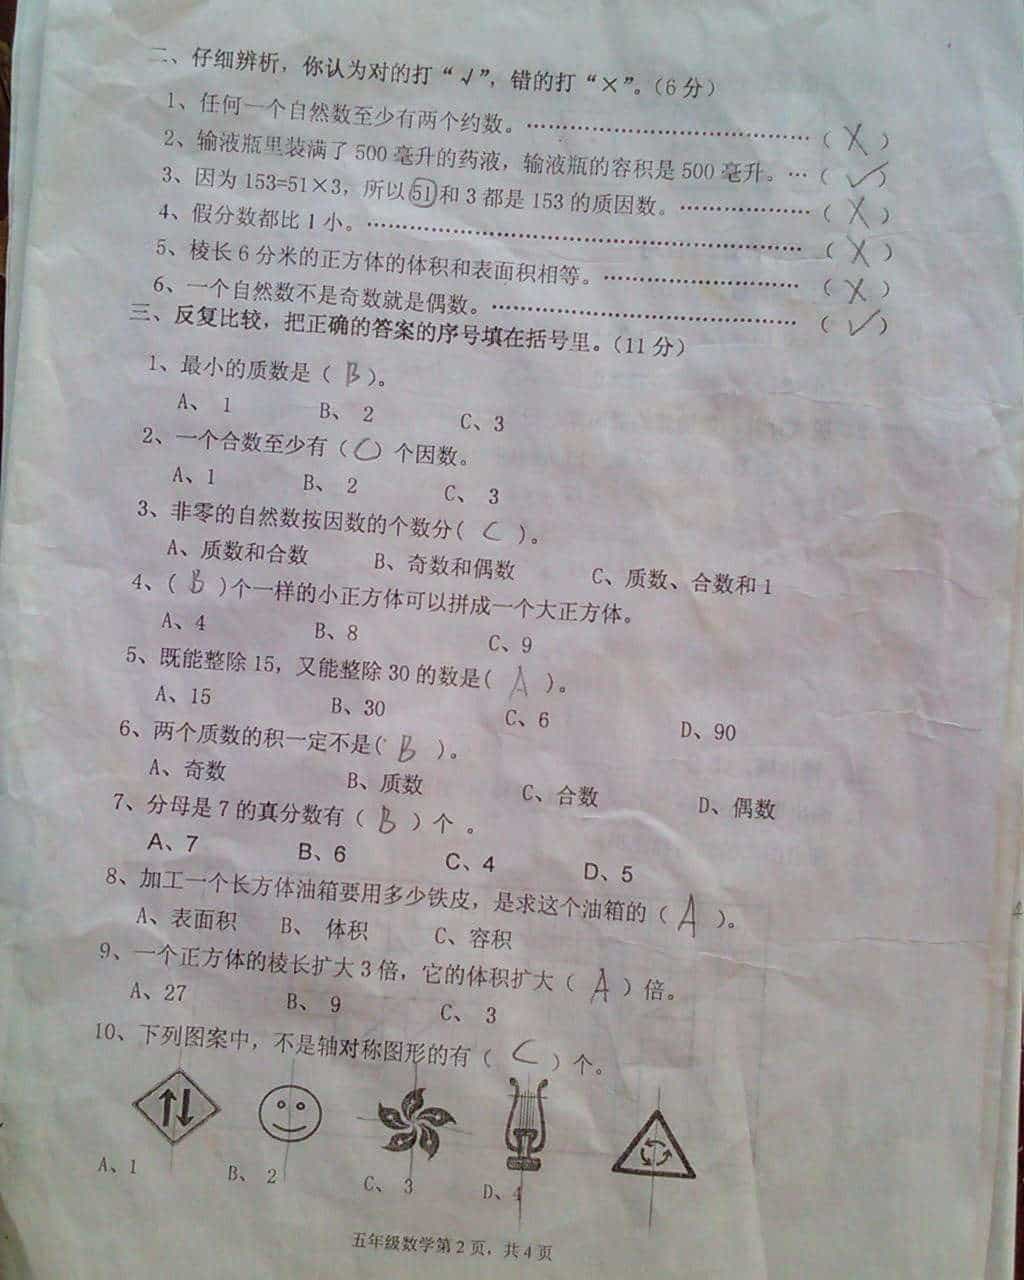 二、仔细辨析，你认为对的打“√”，错的打“×”。（6分）
1、任何一个自然数至少有两个约数。………………………………（ X ）
2、输液瓶里装满了500毫升的药液，输液瓶的容积是500毫升。…（ ✓ ）
3、因为153=51×3，所以51和3都是153的质因数。………………（ X ）
4、假分数都比1小。………………………………………………（ X ）
5、棱长6分米的正方体的体积和表面积相等。………………………（ X ）
6、一个自然数不是奇数就是偶数。…………………………………（ ✓ ）
三、反复比较，把正确的答案的序号填在括号里。（11分）
1、最小的质数是（ B ）。
A、 1 B、 2 C、3
2、一个合数至少有（ C ）个因数。
A、1 B、 2 C、 3
3、非零的自然数按因数的个数分( C )。
A、质数和合数 B、奇数和偶数 C、质数、合数和1
4、( B )个一样的小正方体可以拼成一个大正方体。
A、4 B、8 C、9
5、既能整除15，又能整除30的数是( A )。
A、15 B、30 C、6 D、90
6、两个质数的积一定不是( B )。
A、奇数 B、质数 C、合数 D、偶数
7、分母是7的真分数有（ B ）个 。
A、7 B、6 C、4 D、5
8、加工一个长方体油箱要用多少铁皮，是求这个油箱的（ A ）。
A、表面积 B、 体积 C、容积
9、一个正方体的棱长扩大3倍，它的体积扩大（ A ）倍。
A、27 B、 9 C、 3
10、下列图案中，不是轴对称图形的有（ C ）个。
A、1 B、 2 C、 3 D、4
五年级数学第2页，共4页